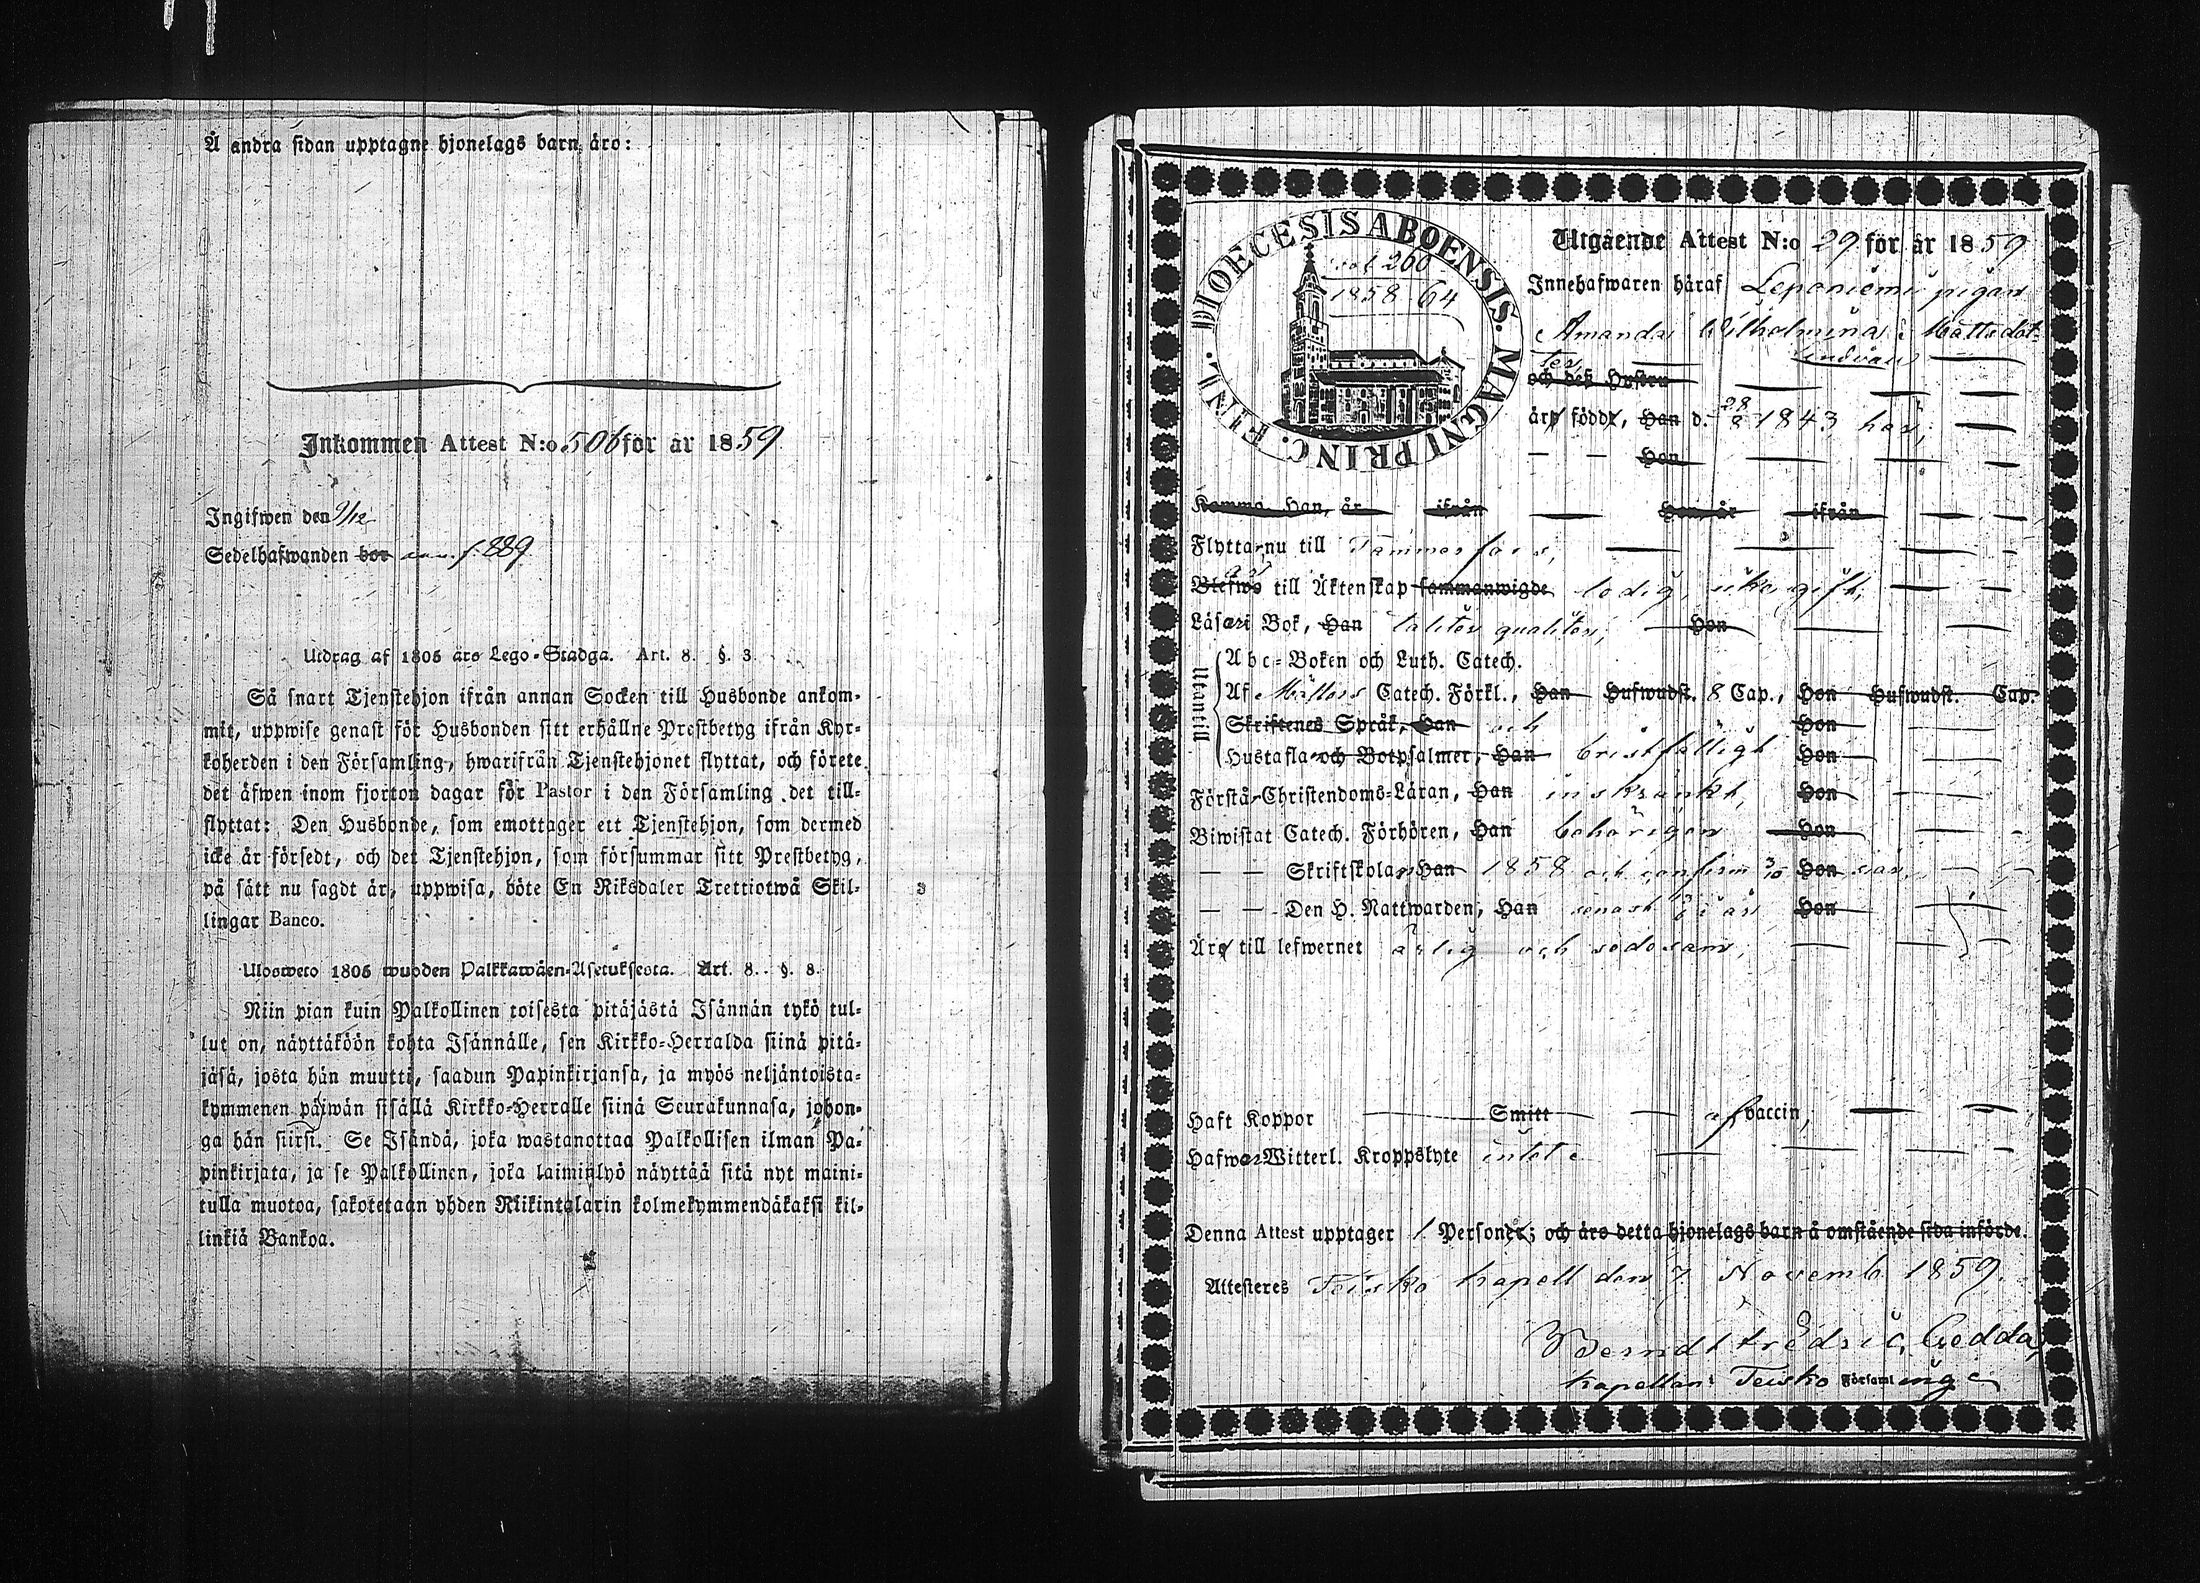 Å andra sidan upptagne hjonelags barn äro:
Inkommen Attest N:o 506 för år 1859
Ingifwen den 9/12
Sedelhafwanden bor f. 889
Utdrag af 1805 års Lego-Stadga. Art. 8. §. 3.
Så snart Tjenstehjon ifrån annan Socken till Husbonde ankom-
mit, uppwise genast för Husbonden sitt erhållne Prestbetyg ifrån Kyr-
koherden i den Församling, hwarifrån Tjenstehjonet flyttat, och förete
det äfwen inom fjorton dagar för Pastor i den Församling det till-
flyttat: Den Husbonde, som emottager ett Tjenstehjon, som dermed
icke är försedt, och det Tjenstehjon, som försummar sitt Prestbetyg,
på sätt nu sagdt är, uppwisa, böte En Riksdaler Trettiotwå Skil-
lingar Banco.
Ulosweto 1805 wuoden Palkkawäen-Asetuksesta. Art. 8. §. 8.
Niin pian kuin Palkollinen toisesta pitäjästä Isännän tykö tul-
lut on, näyttäköön kohta Isännälle, sen Kirkko-Herralda siinä pitä-
jäsä, josta hän muutti, saadun Papinkirjansa, ja myös neljäntoista-
kymmenen päiwän sisällä Kirkko-Herralle siinä Seurakunnasa, johon-
ga hän siirsi. Se Isändä, joka wastanottaa Palkollisen ilman Pa-
pinkirjata, ja se Palkollinen, joka laiminlyö näyttää sitä nyt maini-
tulla muotoa, sakotetaan yhden Riikintalarin kolmekymmendäkaksi kil-
linkiä Bankoa.
DIOECESIS ABOENSIS. MAGNI PRINC. FINL.
260
1858-64
Utgående Attest N:o 29 för år 1859
Innehafwaren häraf Leponiemi pigan
Amanda Wilhelmina Mattsdot-
ter Lindvall
och deß Hustru
äro födde, Han d. 28/8 1843 här,
— — Hon
Komma, Han, är ifrån Hon, är ifrån
Flyttar nu till Tammerfors,
Blefwo till Äktenskap sammanwigde ledig, icke gift,
Läser i Bok, Han Hon
Utantill
Abc-Boken och Luth. Catech.
Af Möllers Catech. Förkl., Han Hufwudst. 8 Cap., Hon Hufwudst. Cap.
Skriftenes Språk, Han och Hon
Hustafla och Botpsalmer, Han bristfälligt Hon
Förstår Christendoms-Läran, Han inskränkt, Hon
Biwistat Catech. Förhören, Han behörigen Hon
— — Skriftskolan Han 1858 och confirm. 3/10 Hon
— — Den H. Nattwarden, Han senast i år Hon
Äro till lefwernet ärlig och sedesam,
Haft Koppor Smitt af vaccin,
Hafwer Witterl. Kroppslyte intet
Denna Attest upptager 1 Personer; och äro detta hjonelags barn å omstående sida införde.
Attesteres Teisko kapell den 7 Novemb. 1859.
Berndt Fredric Gedda,
kapellan i Teisko Församling